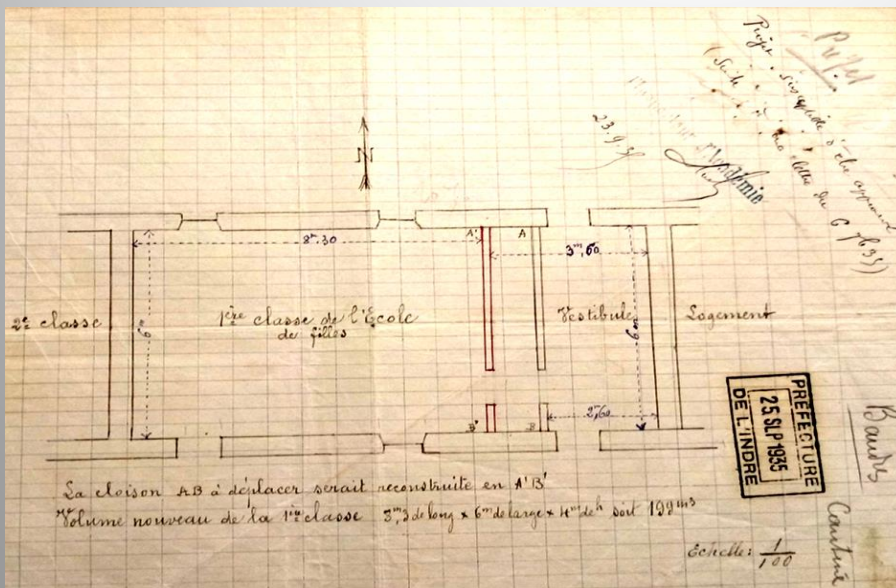 Préfet
Projet susceptible d'être approuvé
(Suite à
lettre du 6
23.9.35
d'Académie
N
8m.30
A'
A
3m,60
2e classe
6m
1ère classe de l'École
de filles
Vestibule
6m
Logement
B'
B
2m,60
PRÉFECTURE
25 SEP 1935
DE L'INDRE
Baudres
La cloison AB à déplacer serait reconstruite en A'B'
Volume nouveau de la 1ère classe 8m,3 de long x 6m de large x 4m de h soit 199m3
Echelle: 1/100